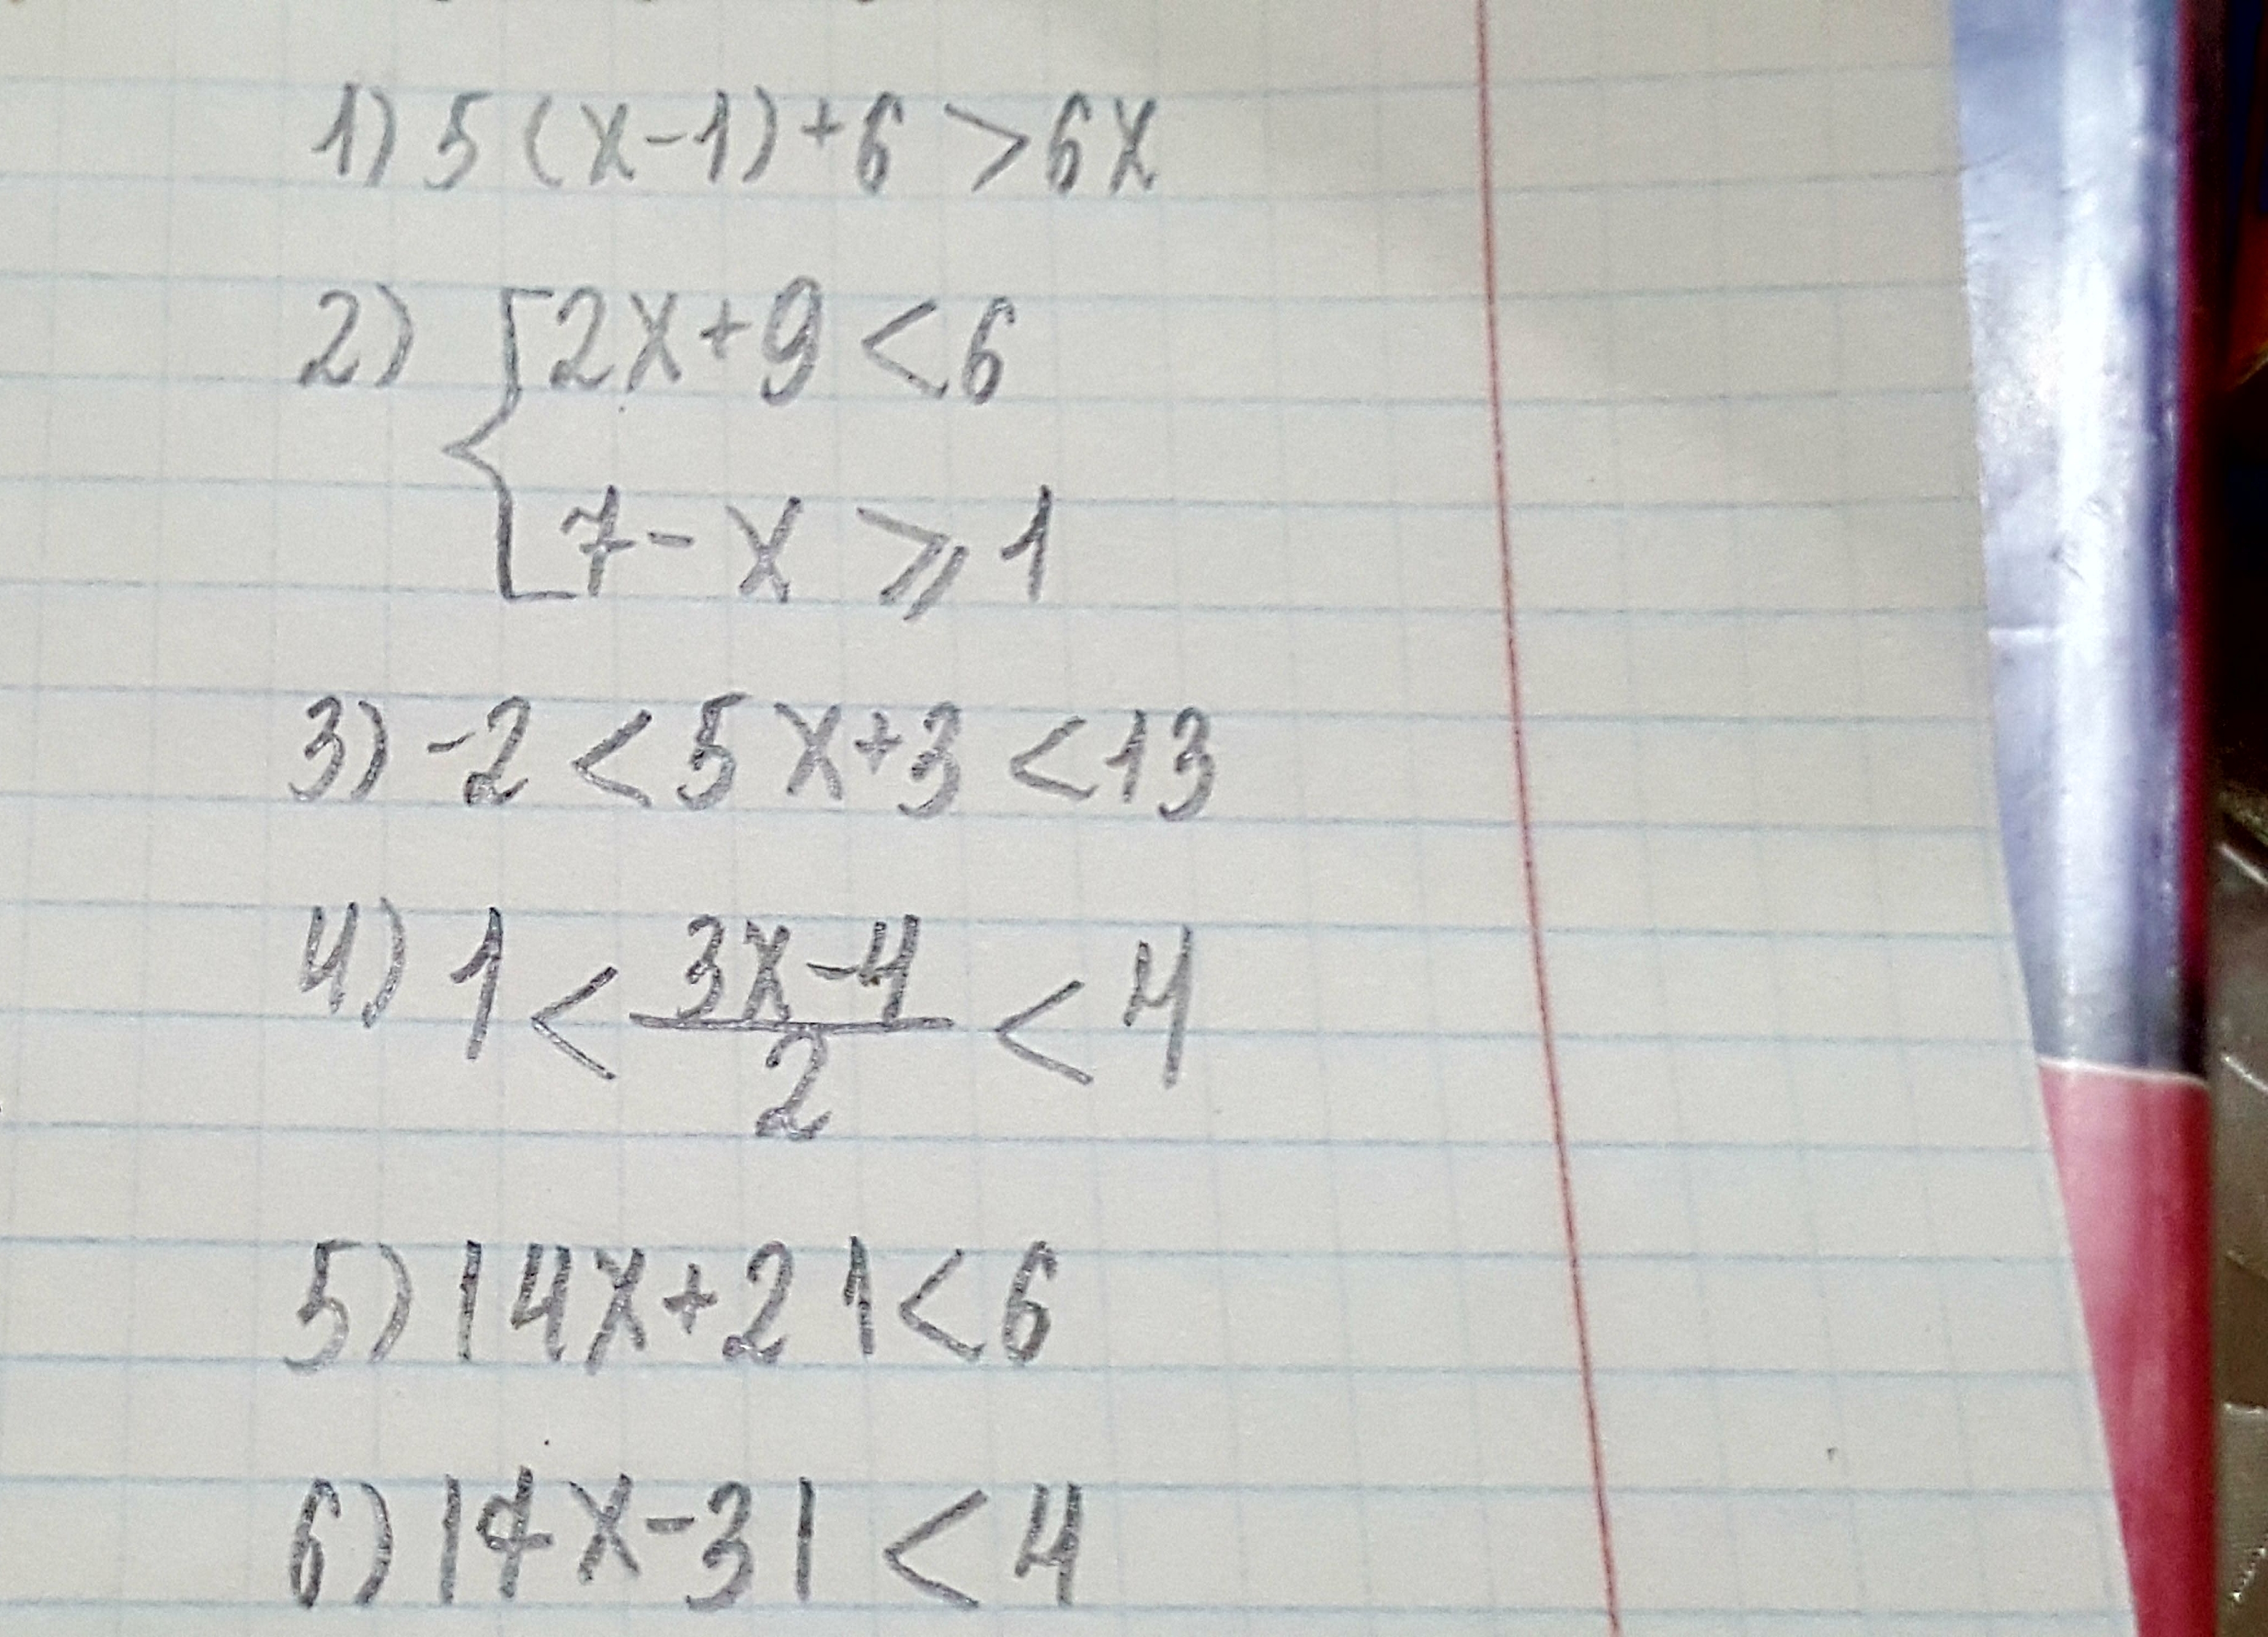 1) 5(x-1)+6 > 6x
2) { 2x+9 < 6
7-x ⩾ 1
3) -2 < 5x+3 < 13
4) 1 < (3x-4)/2 < 4
5) |4x+2| < 6
6) |7x-3| < 4